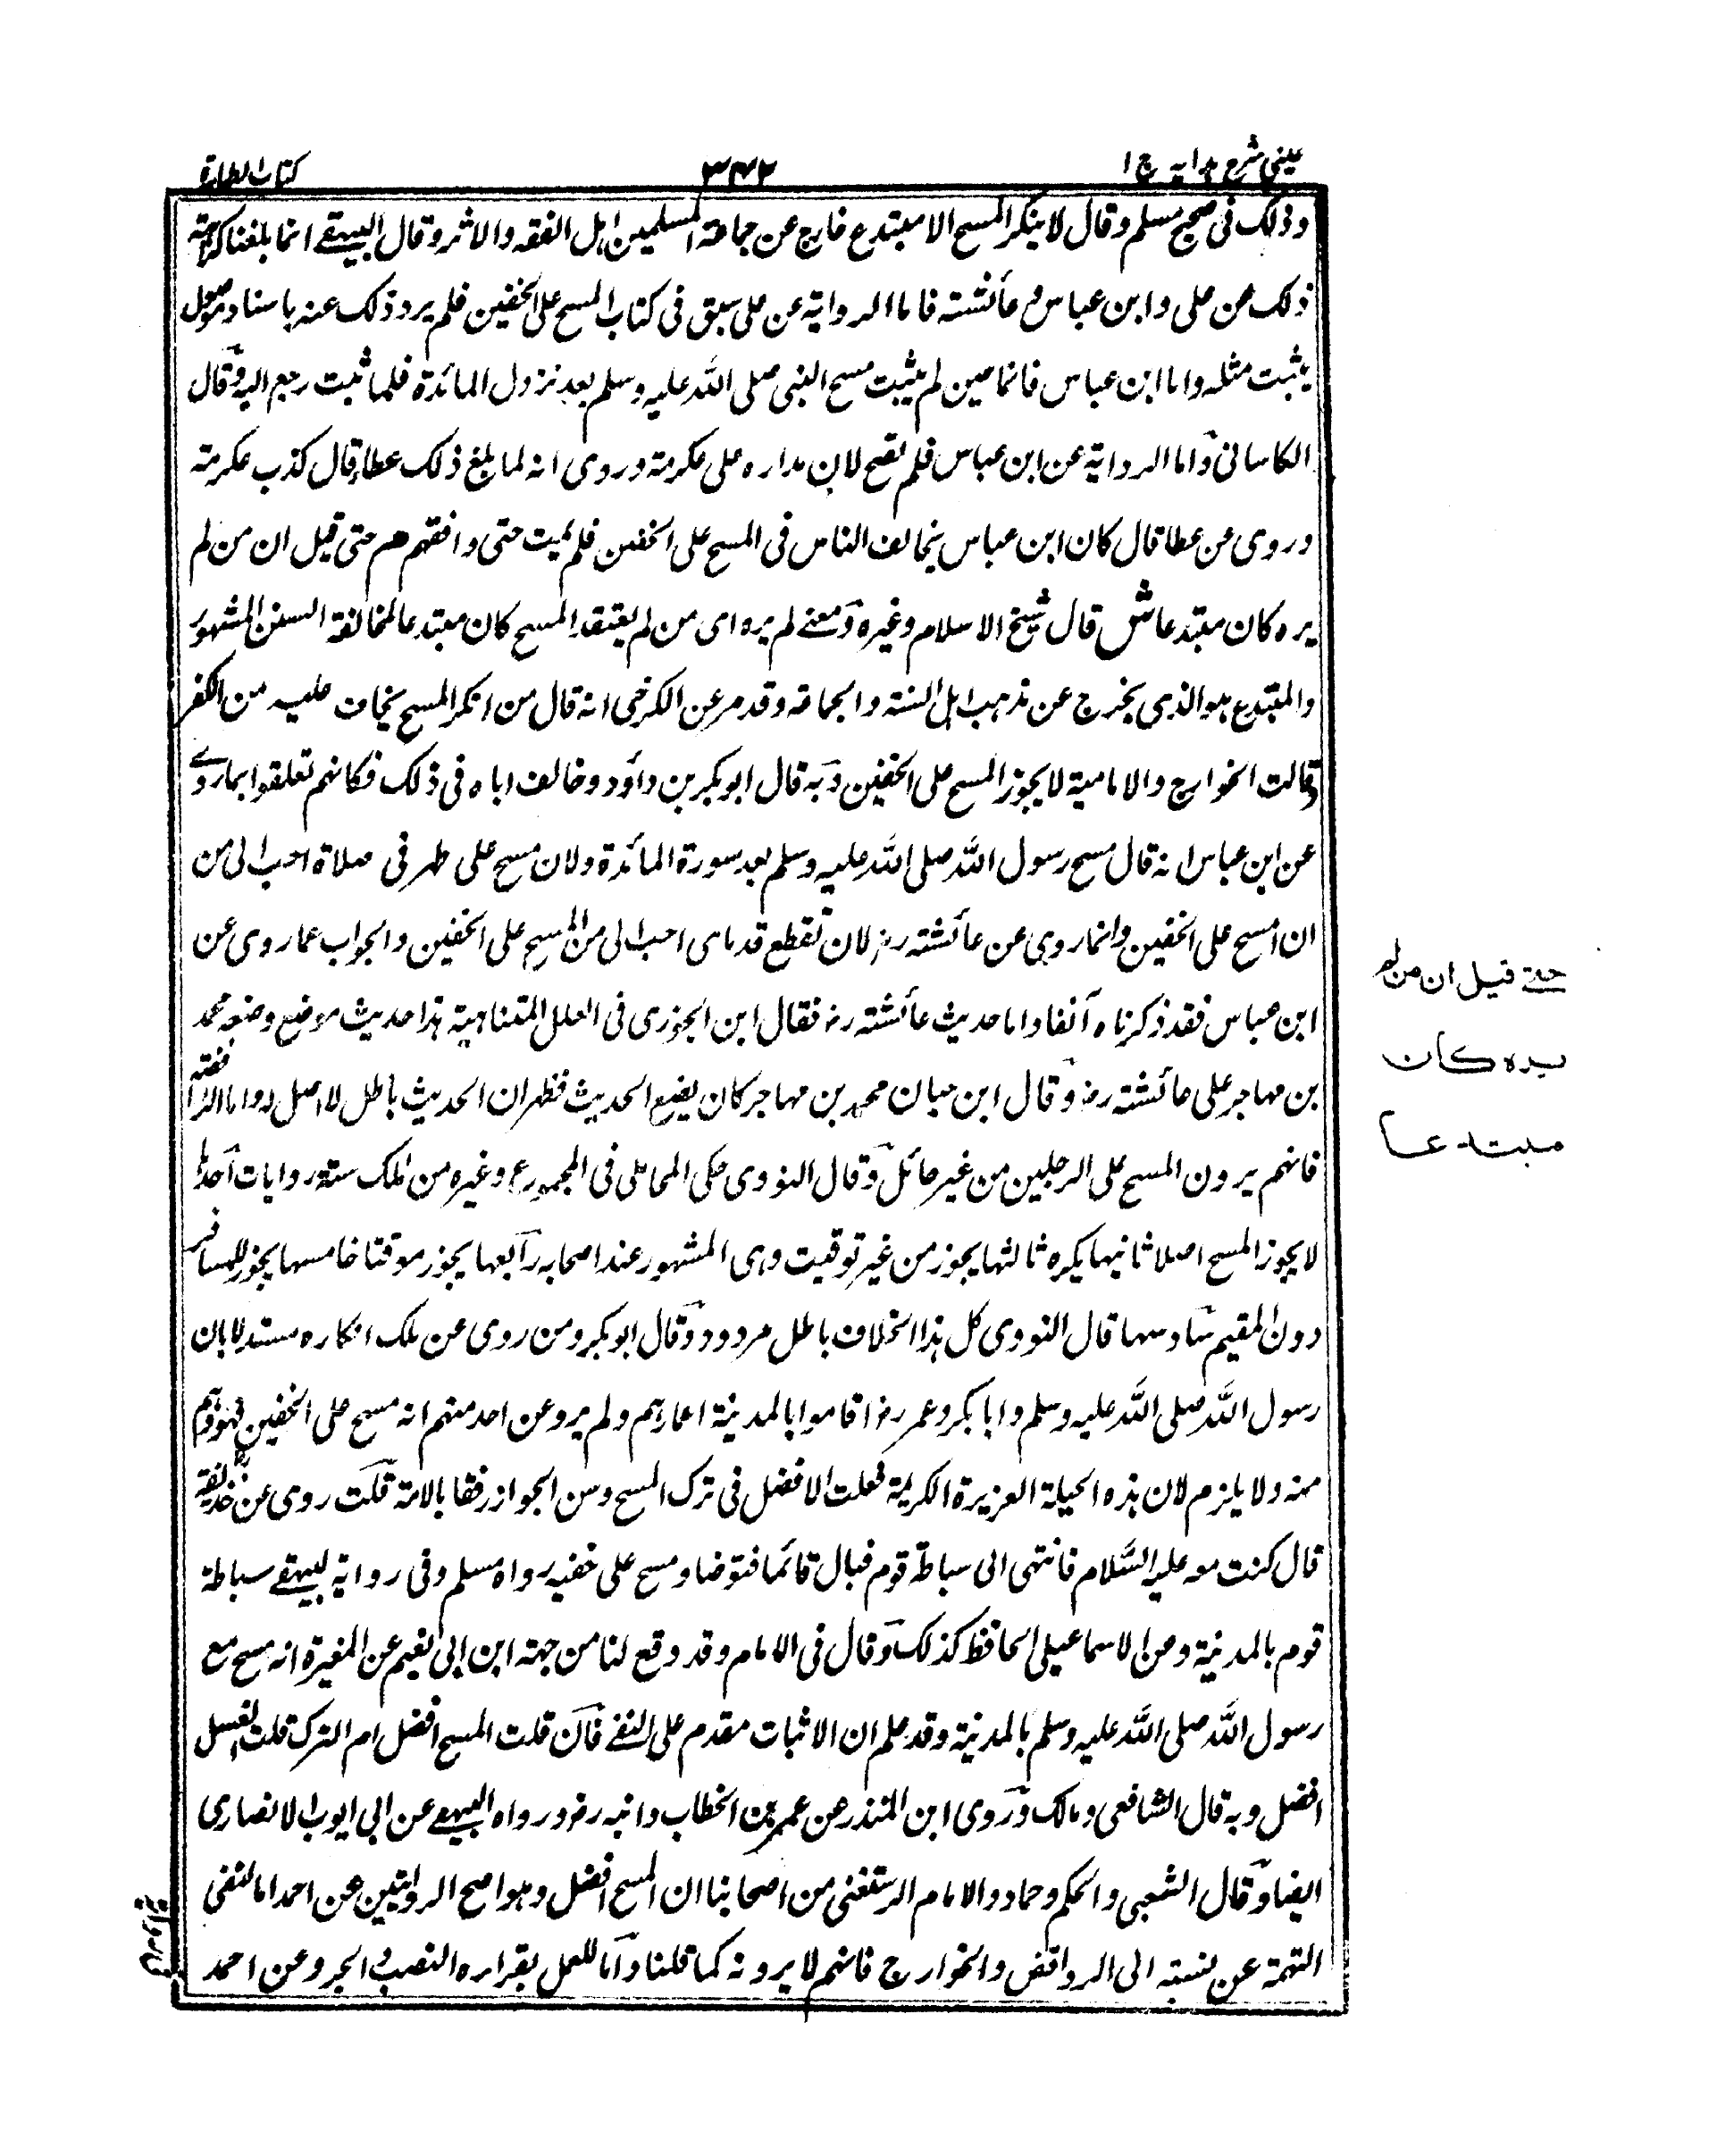 عینی شرح هدایه ج ۱
۳۴۲
کتاب الطهارة
وذلک فی صحیح مسلم وقال لا ینکر المسح الا مبتدع خارج عن جماعة المسلمین اهل الفقه والاثر وقال البیهقے انما بلغنا کراهة
ذلک عن علی وابن عباس و عائشته فاما الروایة عن علی سبق فی کتاب المسح علی الخفین فلم یرد ذلک عنه باسناد موصول
یثبت مثله واما ابن عباس فانما حین لم یثبت مسح النبی صلی الله علیه وسلم بعد نزول المائدة فلما ثبت رجع الیه وقال
الکاسانی واما الروایة عن ابن عباس فلم تصح لان مداره علی عکرمة وروی انه لما بلغ ذلک عطاء قال کذب عکرمة
وروی عن عطا قال کان ابن عباس یخالف الناس فی المسح علی الخفین فلم یمت حتی وافقهم هم حتی قیل ان من لم
یره کان مبتدعا ش قال شیخ الاسلام وغیره ومعنے لم یره ای من لم یعتقد المسح کان مبتدعا لمخالفة السنن المشهورة
والمبتدع هو الذی یخرج عن مذهب اهل السنة والجماعة وقد مر عن الکرخی انه قال من انکر المسح یخاف علیه من الکفر
وقالت الخوارج والامامیة لا یجوز المسح علی الخفین وبه قال ابو بکر بن داؤد وخالف اباه فی ذلک فکانهم تعلقوا بما روے
عن ابن عباس انه قال مسح رسول الله صلی الله علیه وسلم بعد سورة المائدة ولان مسح علی ظهر فی صلاة احب الی من
ان امسح علی الخفین وانما روی عن عائشته رض لان تقطع قدمای احب الی من المسح علی الخفین والجواب عما روی عن
ابن عباس فقد ذکرناه آنفا واما حدیث عائشته رض فقال ابن الجوزی فی العلل المتناهیة هذا حدیث موضع وضعه محمد
بن مهاجر علی عائشته رض وقال ابن حبان محمد بن مهاجر کان یضع الحدیث فظهر ان الحدیث باطل لا اصل له واما الرافضة
فانهم یرون المسح علی الرجلین من غیر حائل وقال النووی حکی المحاملی فی المجموع وغیره من ملک ستة روایات احدها
لا یجوز المسح اصلا ثانیها یکره ثالثها یجوز من غیر توقیت وهی المشهور عند اصحابه رابعها یجوز موقتا خامسها یجوز للمسافر
دون المقیم سادسها قال النووی کل هذا الخلاف باطل مردود وقال ابو بکر ومن روی عن ملک انکاره مستدلا بان
رسول الله صلی الله علیه وسلم وابا بکر وعمر رض اقاموا بالمدینة اعمارهم ولم یرو عن احد منهم انه مسح علی الخفین فهو وهم
منه ولا یلزم لان هذه الحیلة العزیزة الکریمة فعلت الافضل فی ترک المسح وسن الجواز رفقا بالامة قلت روی عن حذیفة
قال کنت معه علیه السلام فانتهی الی سباطة قوم فبال قائما فتوضا ومسح علی خفیه رواه مسلم وفی روایة البیهقے سباطة
قوم بالمدینة وعن الاسماعیلی الحافظ کذلک وقال فی الامام وقد وقع لنا من جهة ابن ابی نعیم عن المغیرة انه مسح مع
رسول الله صلی الله علیه وسلم بالمدینة وقد علم ان الاثبات مقدم علی النفے فان قلت المسح افضل ام الترک قلت الغسل
افضل وبه قال الشافعی ومالک وروی ابن المنذر عن عمر بن الخطاب وابنه رض ورواه البیهقے عن ابی ایوب الانصاری
ایضا وقال الشعبی والحکم وحماد والامام الرستغنی من اصحابنا ان المسح افضل وهو اصح الروایتین عن احمد اما لنفی
التهمة عن نسبته الی الروافض والخوارج فانهم لا یرونه کما قلنا واما للعمل بقراءة النصب والجر وعن احمد
حتے قیل ان من لم
یره کان
مبتدعا